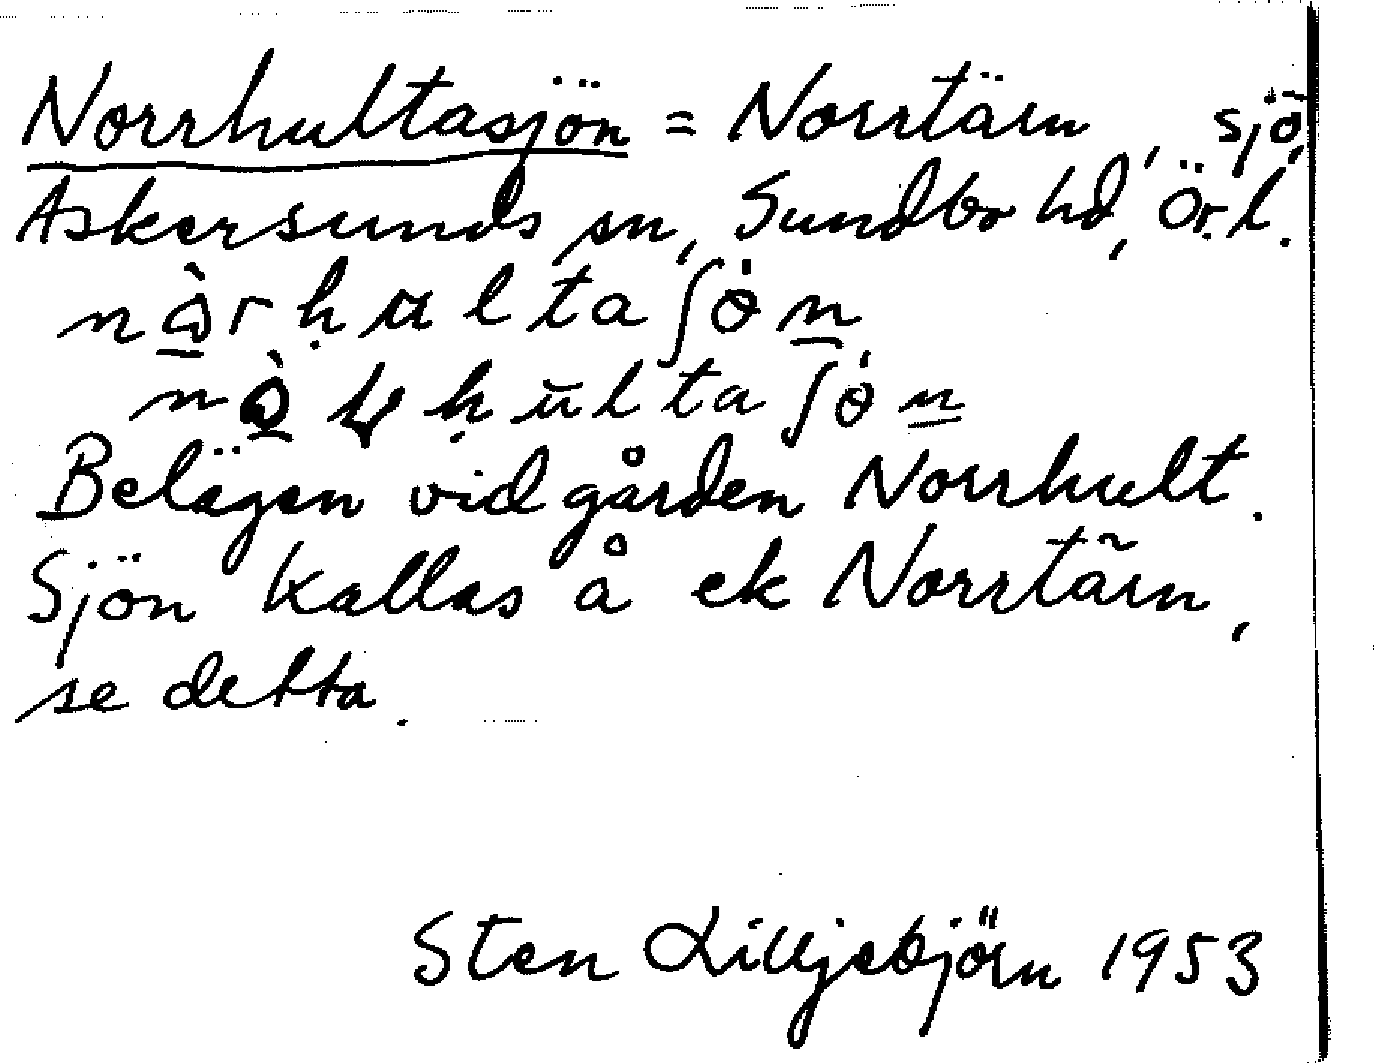 Norrhultasjön = Norrtärn, sjö,
Askersunds sn, Sundbo hd, Ör.l.
Belägen vid gården Norrhult.
Sjön kallas å ek Norrtärn,
se detta.
Sten Lilljebjörn 1953